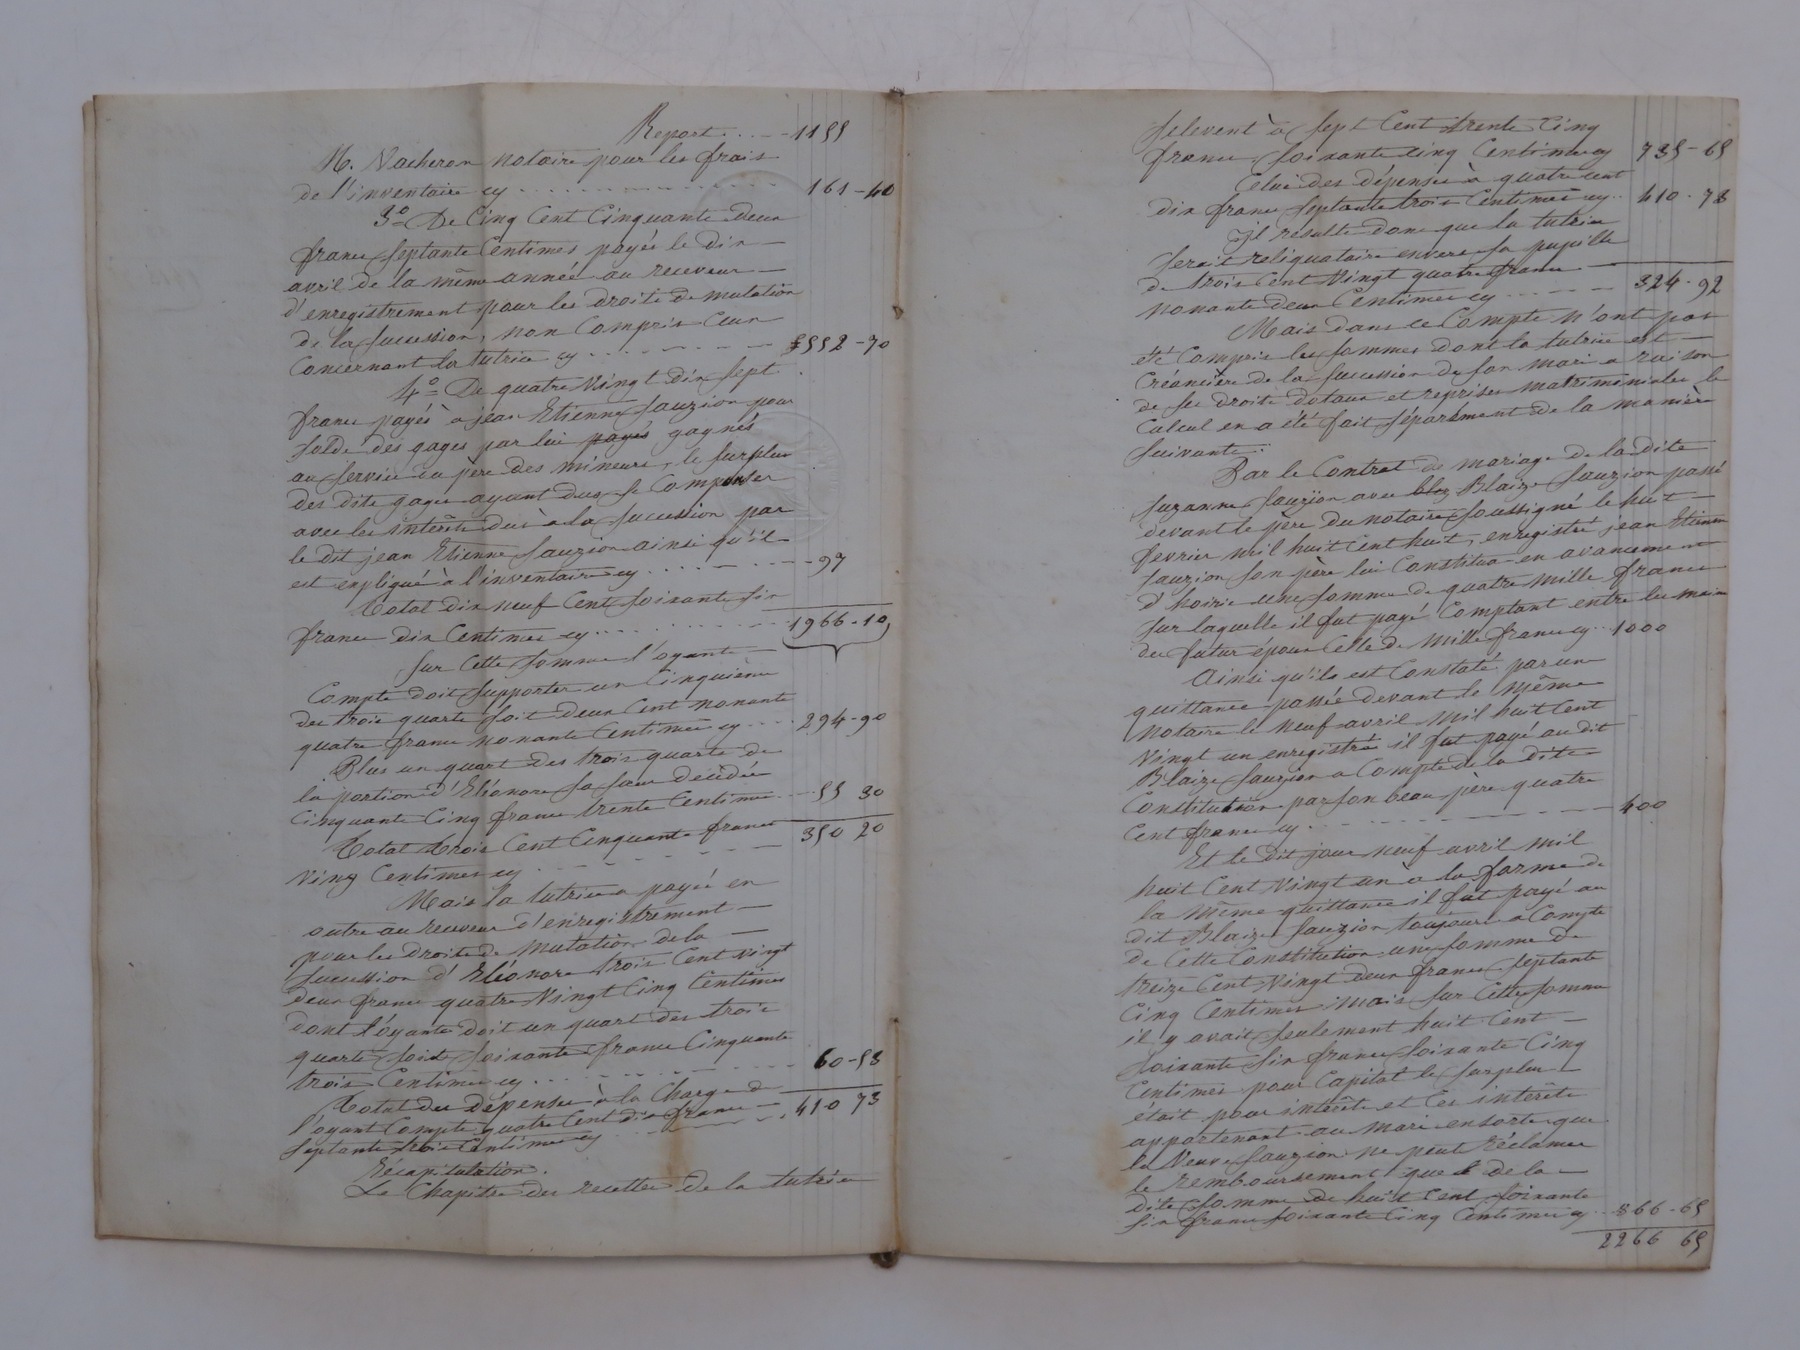 Report . . . . 1155
M. Vacheron notaire pour les frais
de l'inventaire cy . . . . . . 161-40
3° De Cinq Cent Cinquante deux
francs septante Centimes payés le dix
avril de la même année au receveur
d'enregistrement pour les droits de mutation
de la succession, non Compris Ceux
Concernant la tutrice cy . . . . 552-70
4° De quatre Vingt dix sept
francs payés à jean Etienne Sauzion pour
solde des gages par lui payés gagnés
au service du père des mineurs, le surplus
des dits gages ayant dus se Compenser
avec les intérêts dus à la succession par
le dit jean Etienne Sauzion ainsi qu'il
est expliqué à l'inventaire cy . . . . 97
Total dix neuf Cent soixante six
francs dix Centimes cy . . . . 1966-10
sur Cette somme l'oyante
Compte doit supporter un Cinquième
des trois quarts soit deux Cent nonante
quatre francs nonante Centimes cy . . . 294-90
Plus un quart des trois quarts de
la portion d'Eléonore sa sœur décédée
Cinquante Cinq francs trente Centimes . . 55 30
Total trois Cent Cinquante francs 350 20
Vingt Centimes cy
Mais la tutrice a payée en
outre au receveur d'enregistrement
pour les droits de Mutation de la
succession d'Eléonore trois Cent Vingt
deux francs quatre Vingt Cinq Centimes
dont l'oyante doit un quart des trois
quarts soit soixante francs Cinquante
trois Centimes cy . . . . 60-53
Total des dépenses à la Charge de
l'oyant Compte quatre Cent dix francs 410 73
septante trois Centimes cy
Récapitulation.
Le Chapitre des recettes de la tutrice
s'elevent à sept Cent trente Cinq
francs soixante cinq Centimes cy 735-65
Celui des dépenses à quatre cent
dix francs septante trois Centimes cy . . 410-73
Il résulte donc que la tutrice
serait reliquataire envers sa pupille
de trois Cent Vingt quatre francs
nonante deux Centimes cy . . . . 324-92
Mais dans ce Compte n'ont pas
été Compris les sommes dont la tutrice est
Créancière de la succession de son mari a raison
de ses droits dotaux et reprises matrimoniales le
Calcul en a été fait séparément de la manière
suivante :
Par le Contrat de mariage de la dite
Suzanne Sauzion avec blaz Blaize Sauzion passé
devant le père du notaire soussigné le huit
fevrier mil huit Cent huit, enregistré jean Etienne
Sauzion son père lui Constitua en avancement
d'hoirie une somme de quatre mille francs
sur laquelle il fut payé Comptant entre les mains
du futur époux Celle de Mille francs cy . . 1000
Ainsi qu'ils est Constaté par un
quittance passée devant le même
Notaire le neuf avril mil huit Cent
Vingt un enregistrée il fut payé au dit
Blaize Sauzion a Compte de la dite
Constitution par son beau père quatre
Cent francs cy . . . . 400
Et le dit jour neuf avril mil
huit Cent Vingt un à la forme de
la même quittance il fut payé au
dit Blaize Sauzion toujours a Compte
de Cette Constitution une somme de
treize Cent Vingt deux francs septante
Cinq Centimes mais sur Cette somme
il y avait seulement huit Cent
soixante six francs soixante Cinq
Centimes pour Capital le surplus
était pour intérêts et Ces intérêts
appartenant au mari ensorte que
la Veuve Sauzion ne peut réclamer
le remboursement que de la
dite somme de huit Cent soixante
six francs soixante Cinq Centimes cy 866-65
2266 65